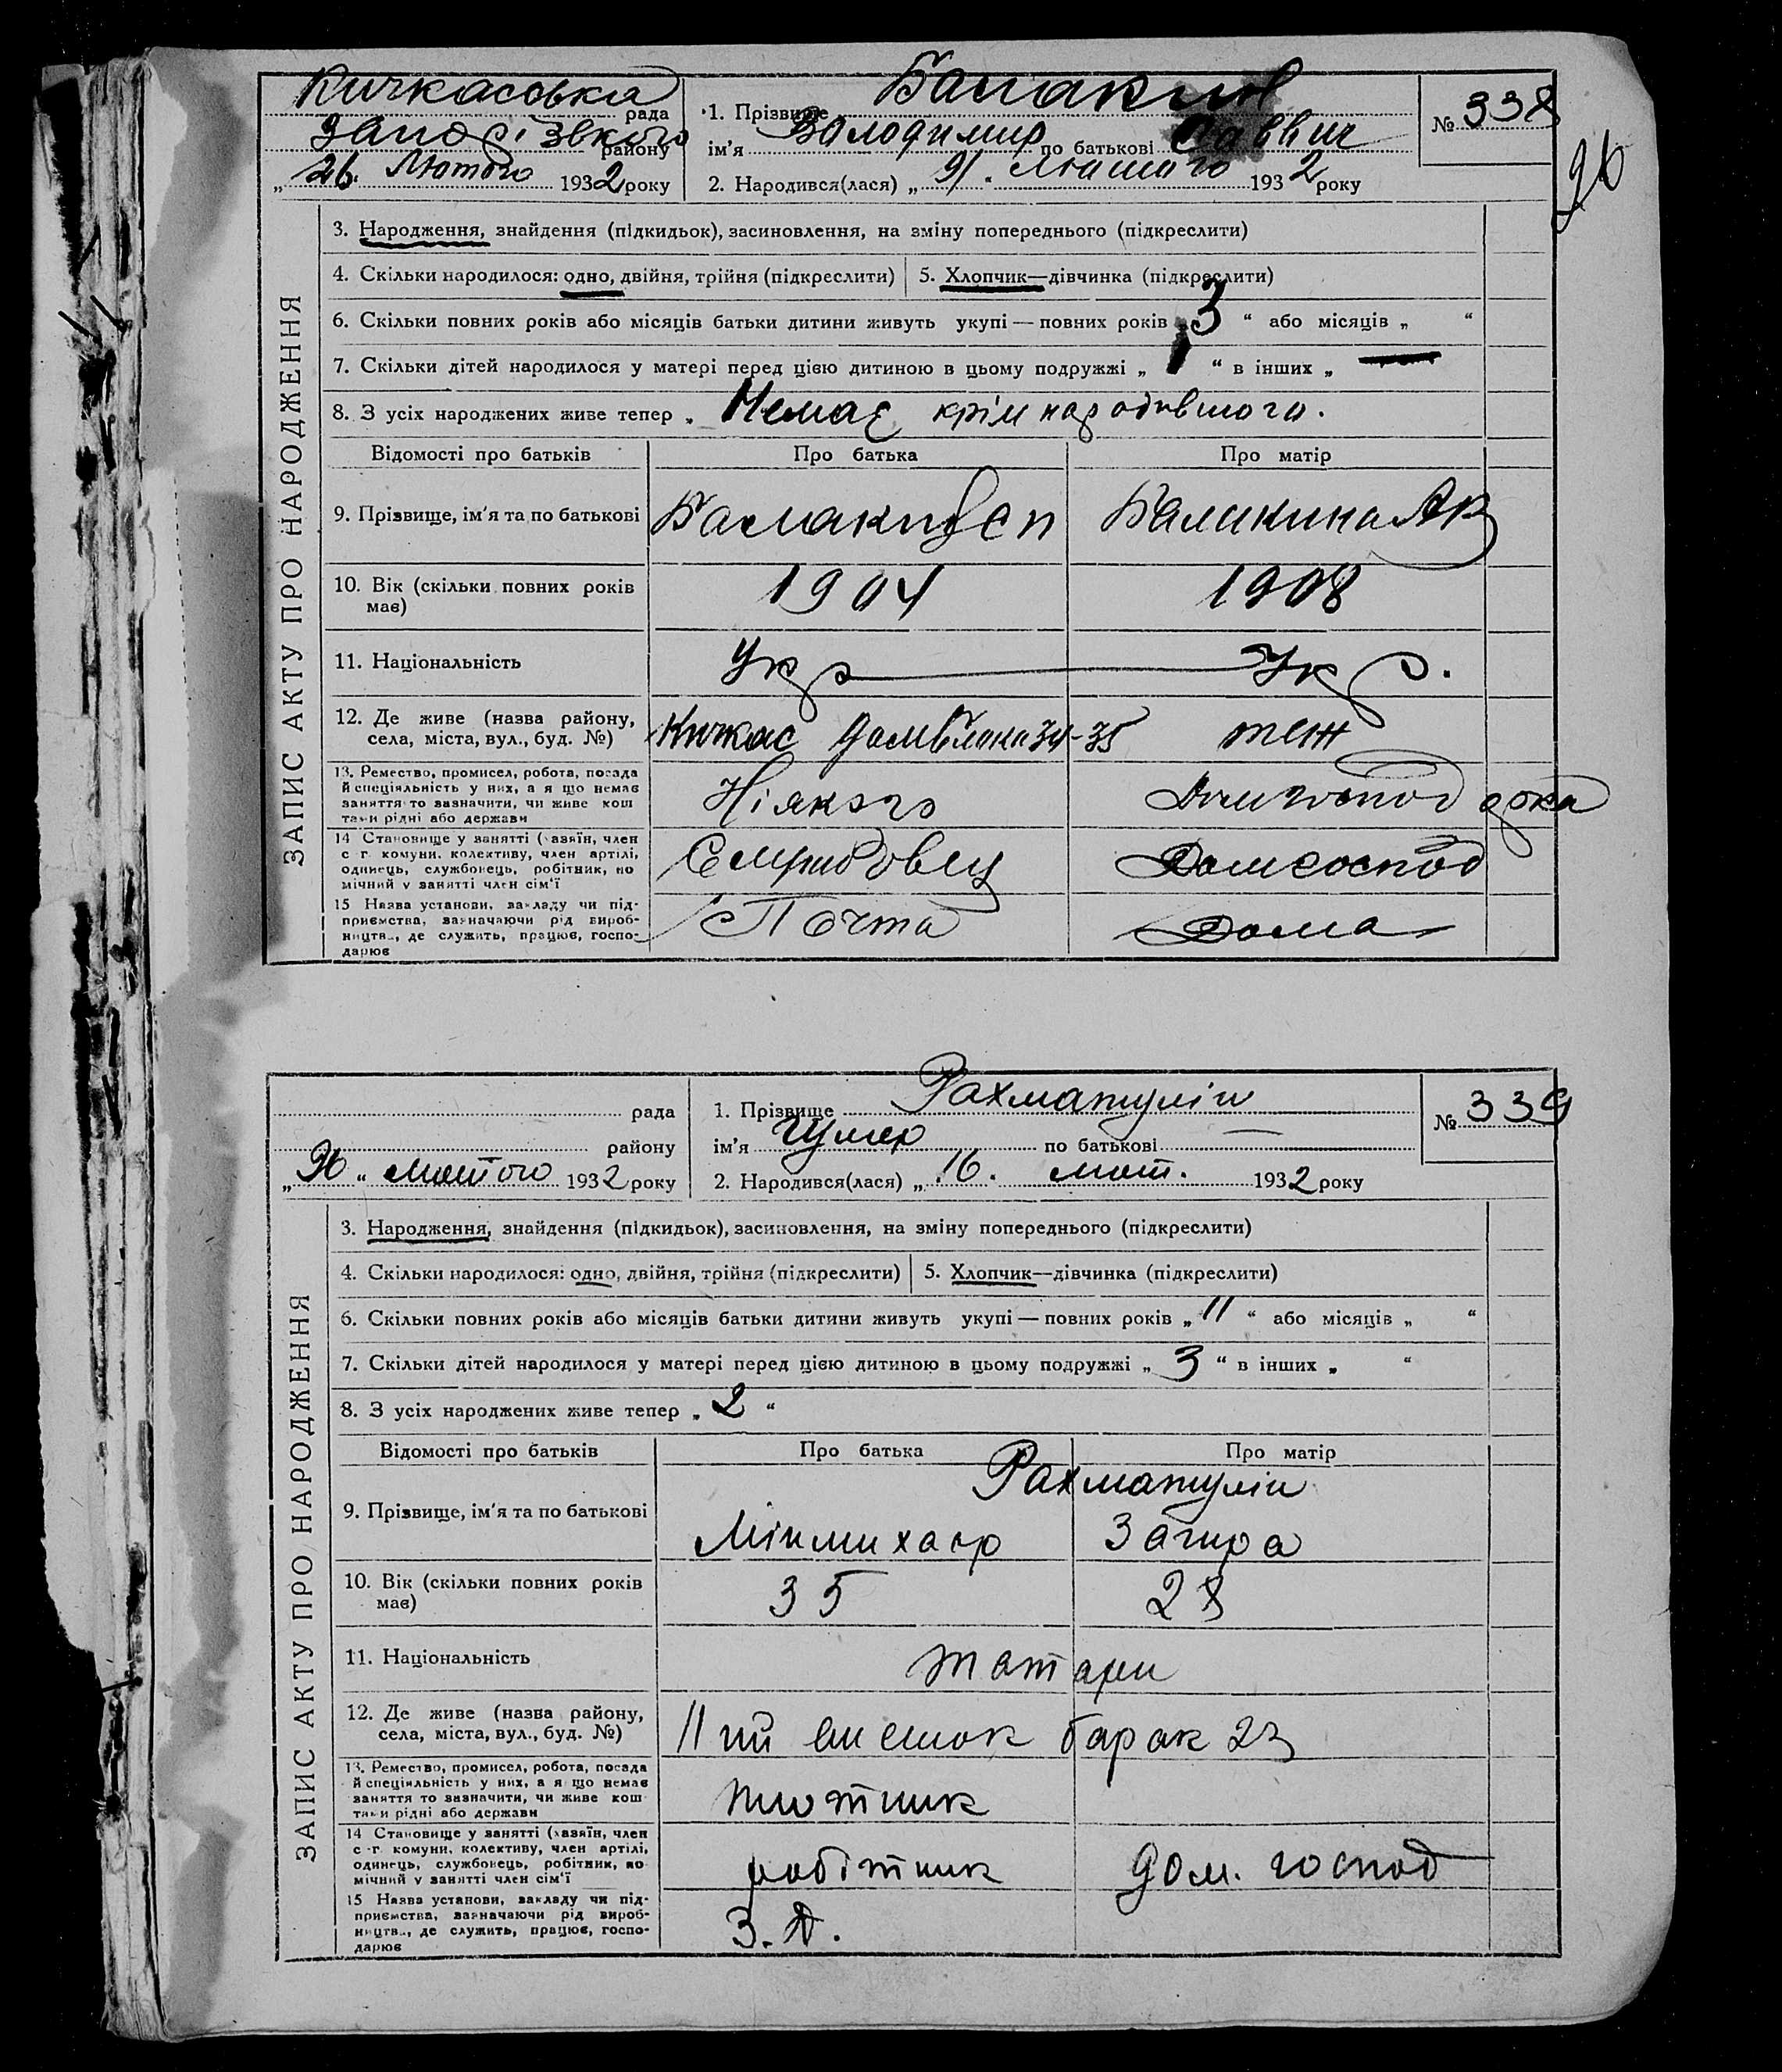 Кичкасовка рада
Запорізького району
„26“ Лютого 1932 року
1. Прізвище Балакин
ім'я Володимир по батькові Саввич
2. Народився(лася) „ “ Лютого 1932 року
№ 338
96
ЗАПИС АКТУ ПРО НАРОДЖЕННЯ
3. Народження, знайдення (підкидьок), засиновлення, на зміну попереднього (підкреслити)
4. Скільки народилося: одно, двійня, трійня (підкреслити)
5. Хлопчик—дівчинка (підкреслити)
6. Скільки повних років або місяців батьки дитини живуть укупі — повних років „3“ або місяців „ “
7. Скільки дітей народилося у матері перед цією дитиною в цьому подружжі „1“ в інших „
8. З усіх народжених живе тепер „ Немає крім народившого.
Відомості про батьків Про батька Про матір
9. Прізвище, ім'я та по батькові Балакин Балакина
10. Вік (скільки повних років має) 1904 1908
11. Національність Укр Укр.
12. Де живе (назва району, села, міста, вул., буд. №) Кичкас 34-35 теж
13. Ремество, промисел, робота, посада й спеціяльність у них, а я що немає заняття то зазначити, чи живе коштами рідні або держави Ніякого Домгосподарка
14 Становище у занятті (хазяїн, член с.-г. комуни, колективу, член артілі, одинець, службовець, робітник, помічний у занятті член сім'ї Домгоспод
15 Назва установи, закладу чи підприємства, зазначаючи рід виробництв., де служить, працює, господарює Почта Дома
рада
району
„ “ лютого 1932 року
1. Прізвище Рахматулін
ім'я по батькові —
2. Народився(лася) „16. лют. 1932 року
№ 339
ЗАПИС АКТУ ПРО НАРОДЖЕННЯ
3. Народження, знайдення (підкидьок), засиновлення, на зміну попереднього (підкреслити)
4. Скільки народилося: одно, двійня, трійня (підкреслити)
5. Хлопчик—дівчинка (підкреслити)
6. Скільки повних років або місяців батьки дитини живуть укупі — повних років „11“ або місяців „ “
7. Скільки дітей народилося у матері перед цією дитиною в цьому подружжі „3“ в інших „ “
8. З усіх народжених живе тепер „2“
Відомості про батьків Про батька Про матір
Рахматулін
9. Прізвище, ім'я та по батькові Загира
10. Вік (скільки повних років має) 35 28
11. Національність татари
12. Де живе (назва району, села, міста, вул., буд. №) 11 ий барак 23
13. Ремество, промисел, робота, посада й спеціяльність у них, а я що немає заняття то зазначити, чи живе коштами рідні або держави плотник
14 Становище у занятті (хазяїн, член с.-г. комуни, колективу, член артілі, одинець, службовець, робітник, помічний у занятті член сім'ї робітник дом. господ
15 Назва установи, закладу чи підприємства, зазначаючи рід виробництв., де служить, працює, господарює З. Д.